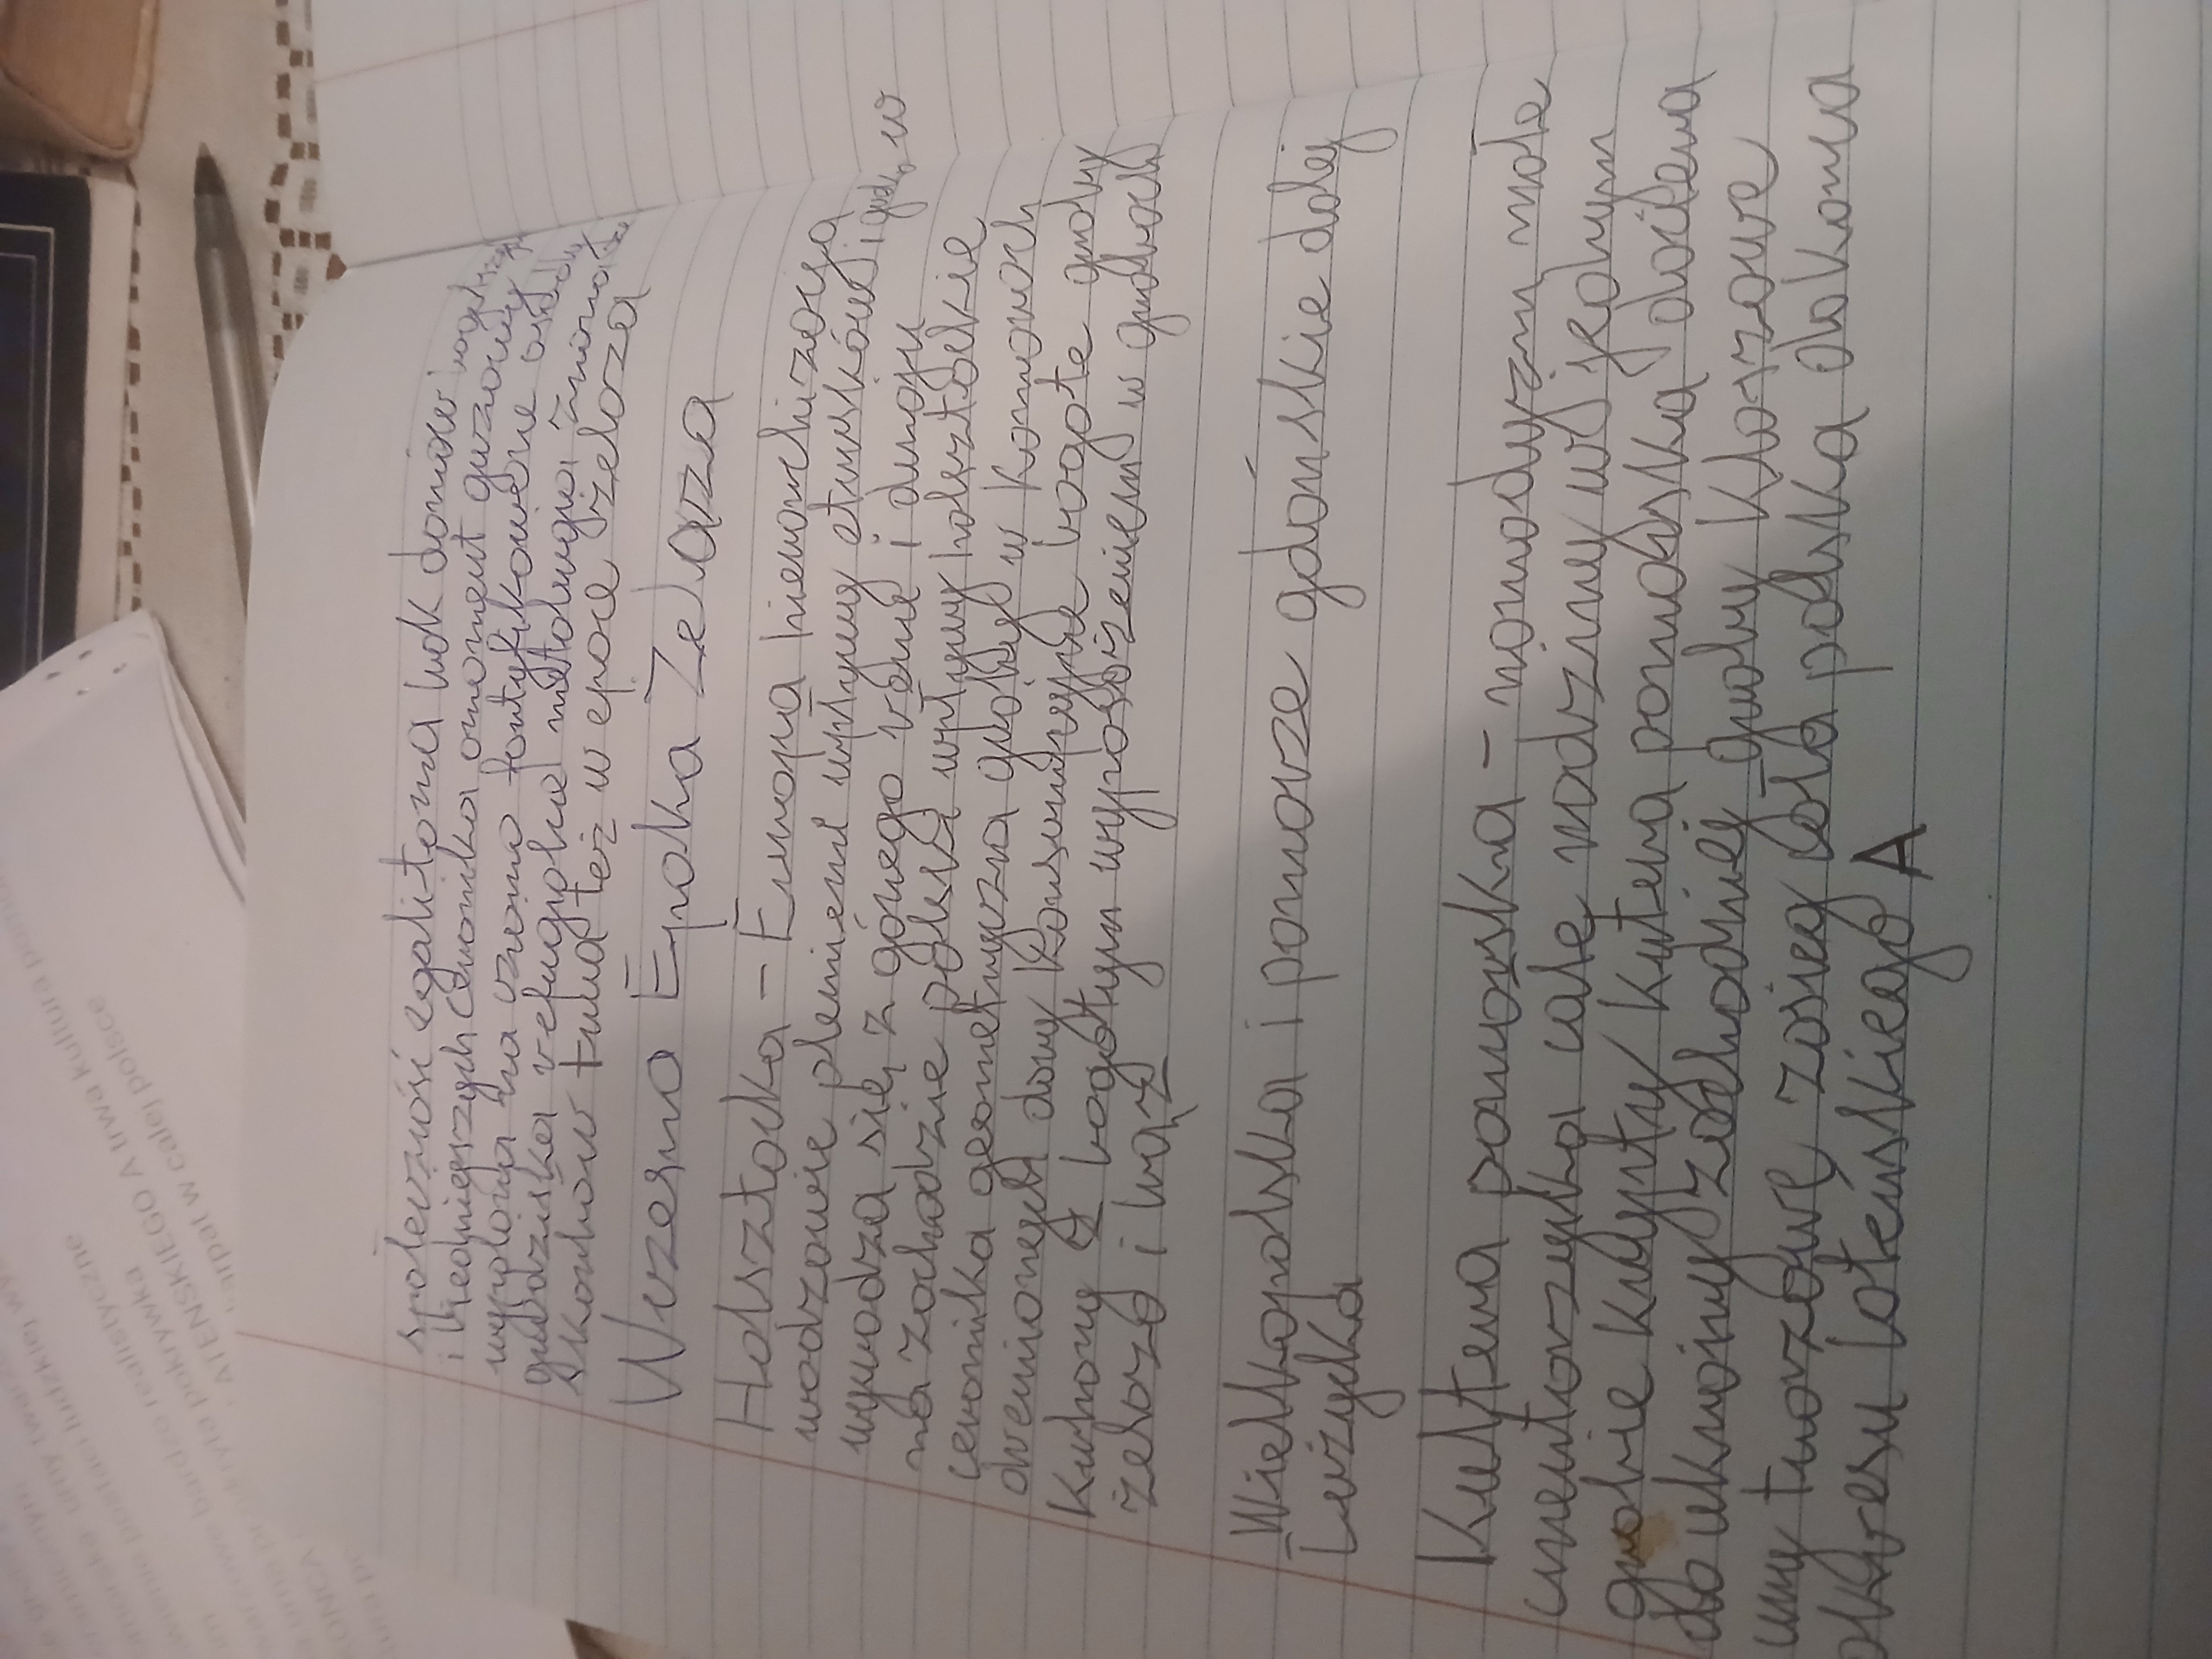 e groby
eramicznym
omorska- urny twarzo
wienie postaci ludzkiej wy
warzowe bardzo realistyczne
a urna przykryta pokrywka
KONCA ATENSKIEGO A trwa kultura pomo
tura po karpat w calej polsce
społeczność egalitarna brak domów bogatszych
i biedniejszych ceramika ornament guzowy
wypalana na czarno fortyfikowane osady
grodziska refugialne metalurgia znana ze
skarbów trwa też w epoce żelaza
Wczesna Epoka Żelaza
Halsztacka - Europa hierarchizacja
wodzowie plemienni wpływy etrusków i greków
wywodzą się z górnego renu i dunaju
na zachodzie polski wpływy halsztackie
ceramika geometryczna groby w komorach
drewnianych dary konsumpcyjne bogate groby
Kurhany z bogatym wyposażeniem w grobach
żelazo i brąz
Wielkopolska i pomorze gdańskie dalej
Łużycka
Kultura pomorska - nomadyzm małe
cmentarzyska całe rodziny w jednym
grobie krypty Kutura pomorska dociera
do ukrainy zachodniej groby Kloszowe
urny twarzowe zasięg cała polska do końca
okresu lateńskiego A